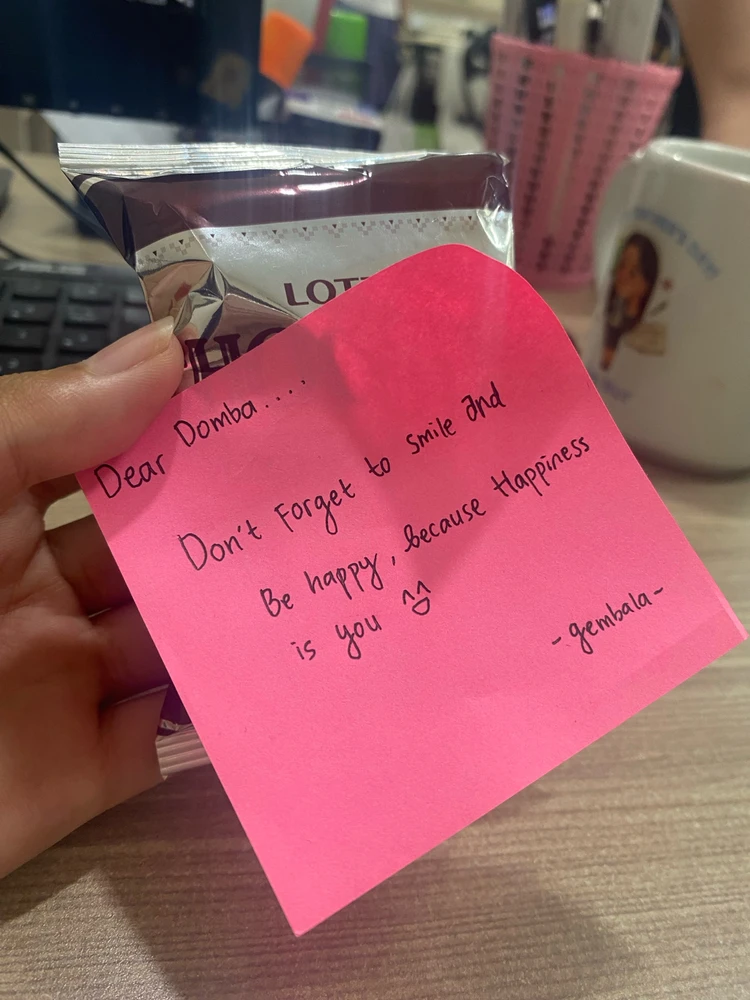 LOT
HO
Dear Domba....
Don't Forget to smile and
Be happy, because Happiness
is you
-gembala-